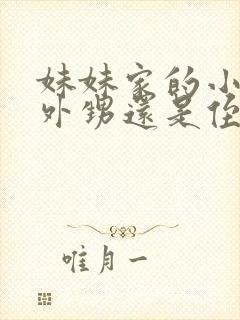 妹妹家的小
外甥還是侄
唯月一